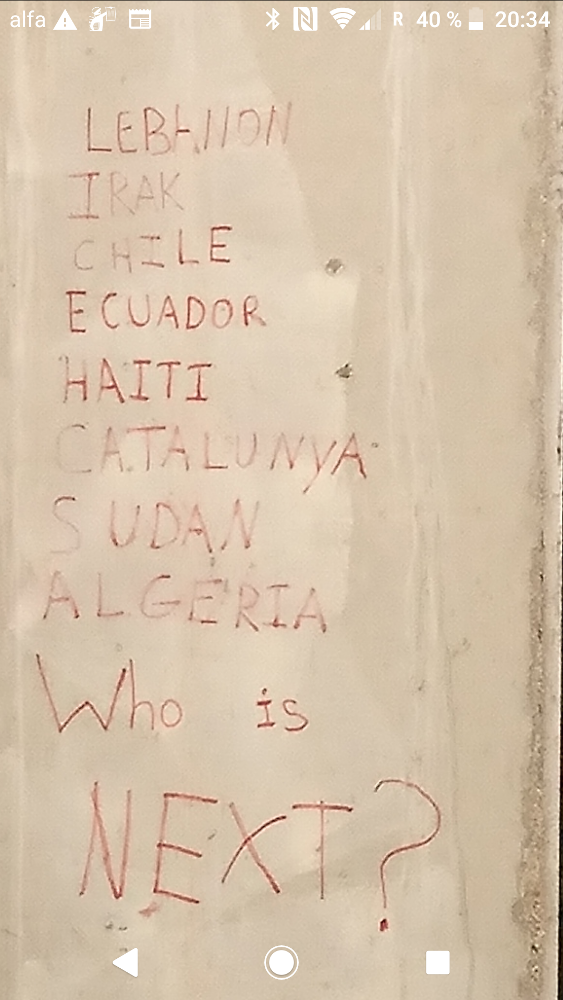 alfa R 40 % 20:34
LEBANON
IRAK
CHILE
ECUADOR
HAITI
CATALUNYA
SUDAN
ALGERIA
Who is
NEXT?